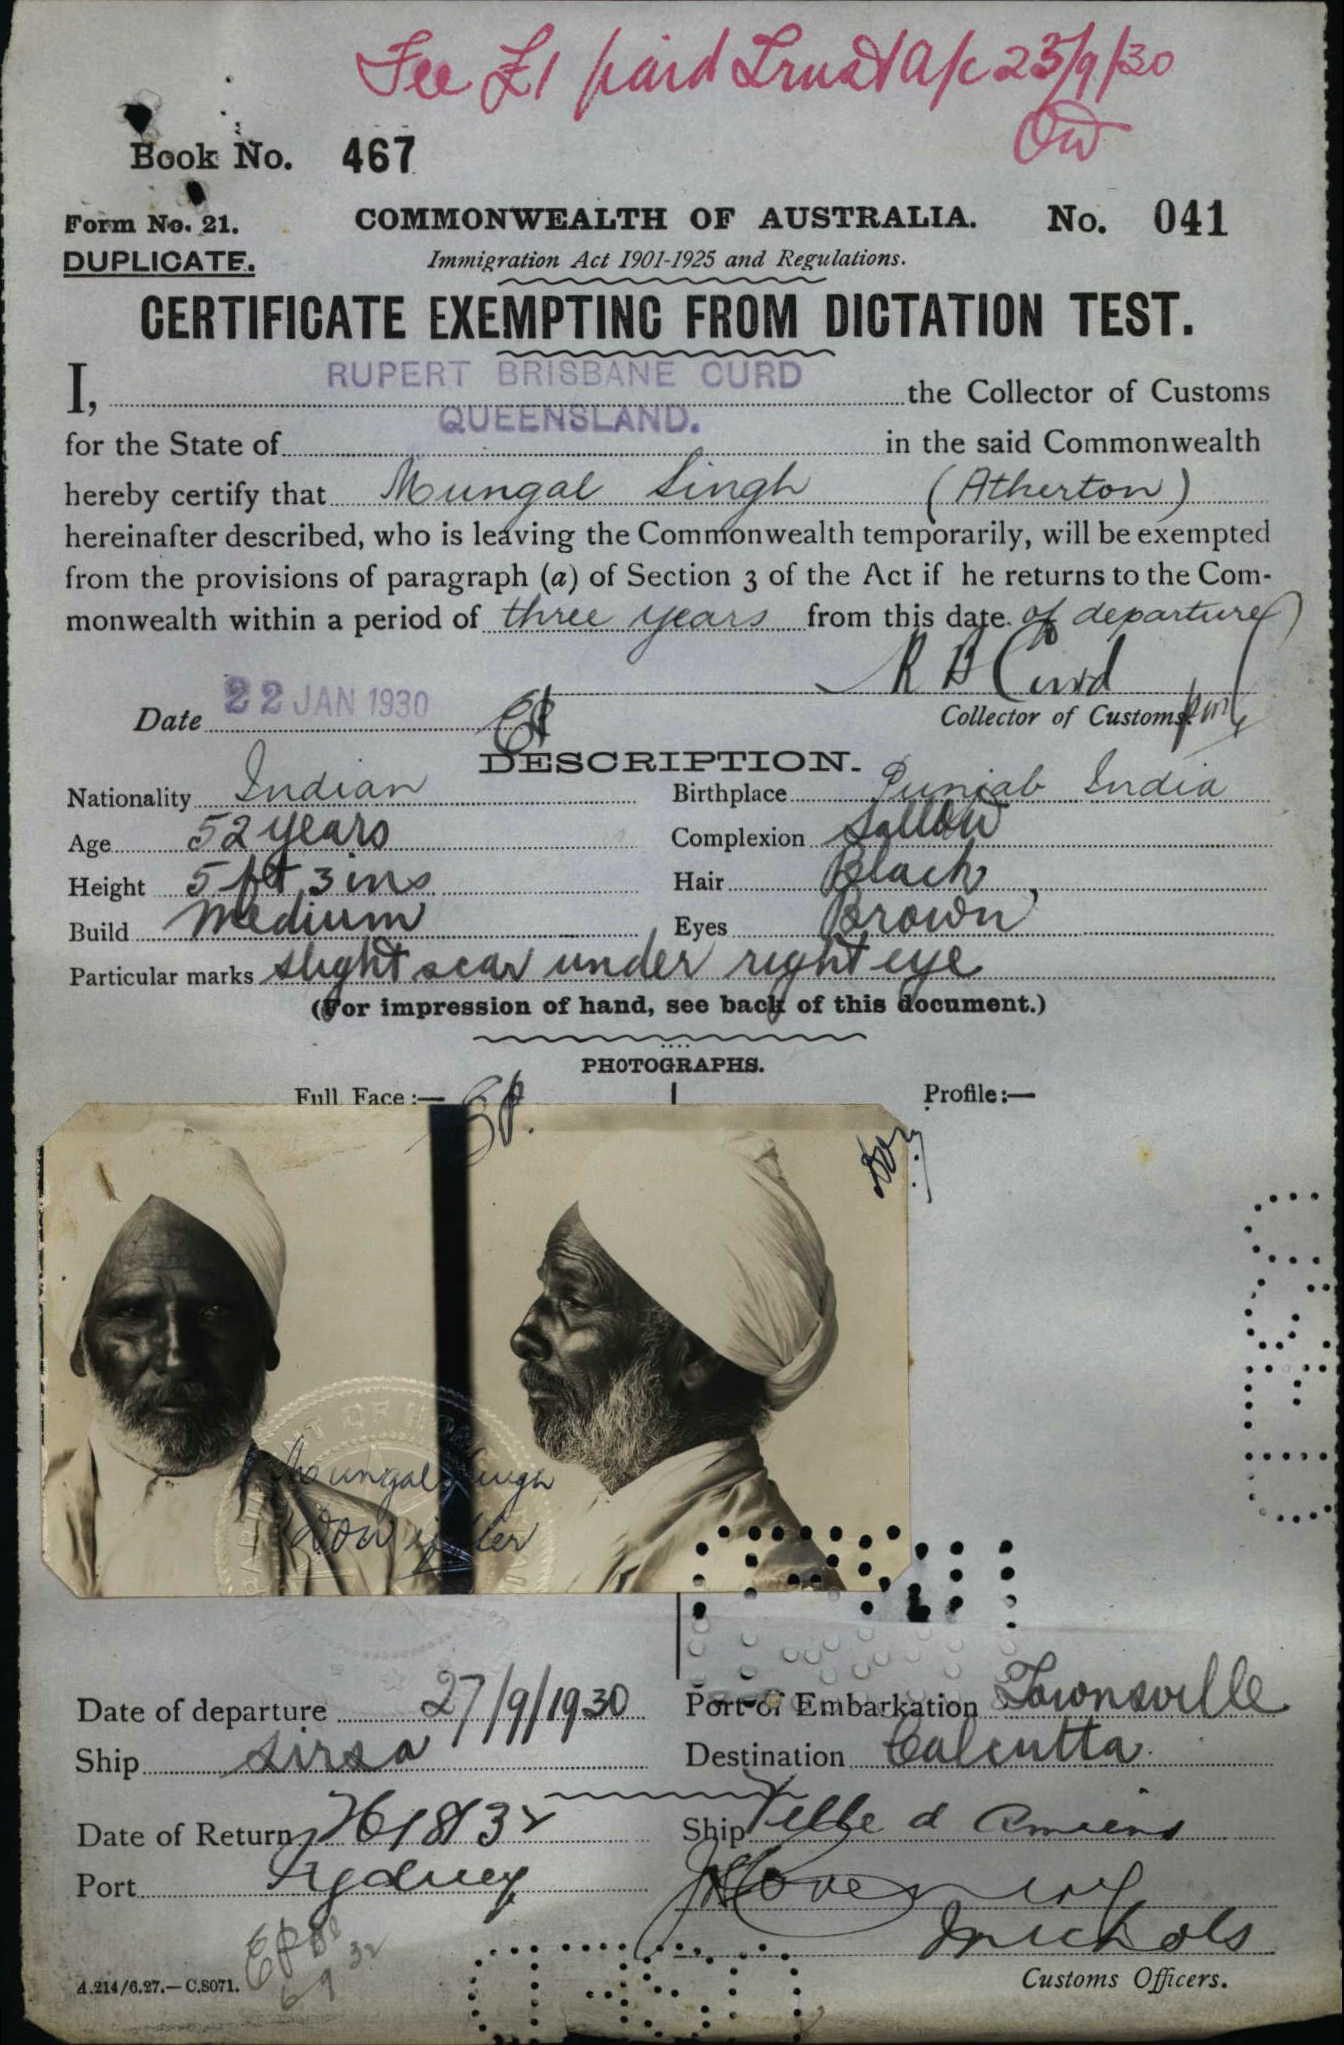 Fee £1 paid Trust A/c 23/9/30
Book No. 467
Form No. 21.
COMMONWEALTH OF AUSTRALIA.
No. 041
DUPLICATE.
Immigration Act 1901-1925 and Regulations.
CERTIFICATE EXEMPTING FROM DICTATION TEST.
I, RUPERT BRISBANE CURD the Collector of Customs
for the State of QUEENSLAND. in the said Commonwealth
hereby certify that Mungal Singh (Atherton)
hereinafter described, who is leaving the Commonwealth temporarily, will be exempted
from the provisions of paragraph (a) of Section 3 of the Act if he returns to the Com-
monwealth within a period of three years from this date of departure
R B Curd
Date 22 JAN 1930
Collector of Customs.
DESCRIPTION.
Nationality Indian Birthplace Punjab India
Age 52 years Complexion Sallow
Height 5 ft 3 ins Hair Black
Build Medium Eyes Brown
Particular marks slight scar under right eye
(For impression of hand, see back of this document.)
PHOTOGRAPHS.
Full Face:— Profile:—
Mungal Singh
Date of departure 27/9/1930 Port of Embarkation Townsville
Ship Sirsa Destination Calcutta
Date of Return 26/8/32 Ship Ville d Amiens
Port Sydney
Nichols
A.214/6.27.—C.8071.
Customs Officers.